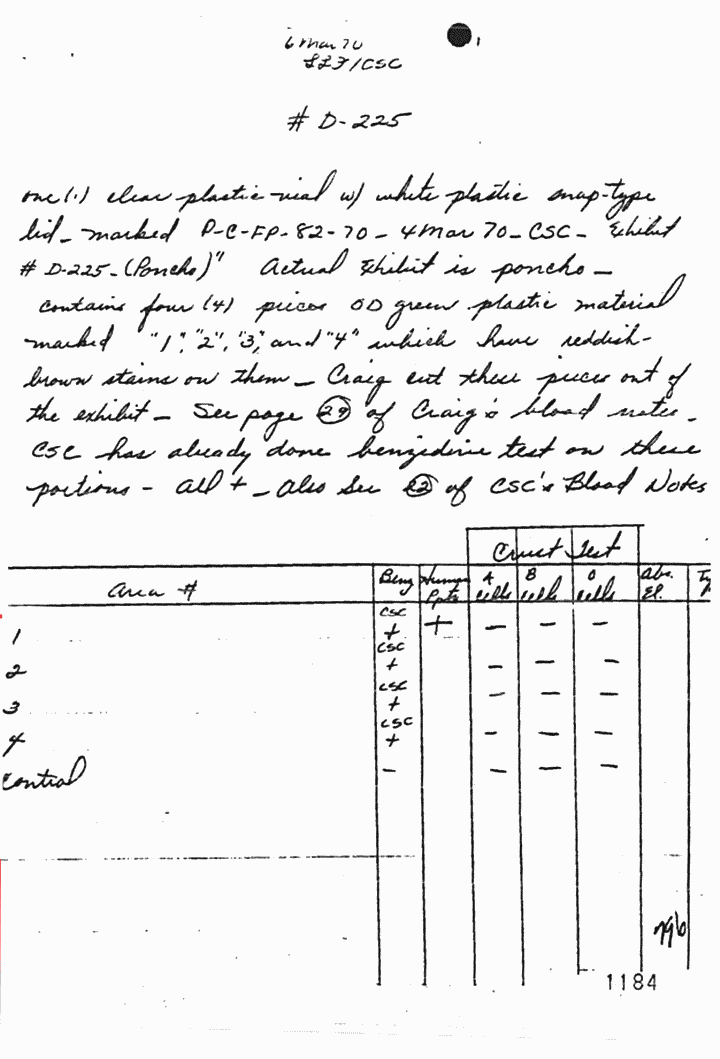 6 Mar 70
LLF/CSC
# D-225
one (1) clear plastic vial w/ white plastic snap-type
lid - marked P-C-FP-82-70 - 4 Mar 70 - CSC - Exhibit
# D-225 - (Poncho)" Actual Exhibit is poncho -
contains four (4) pieces OD green plastic material
marked "1", "2", "3", and "4" which have reddish-
brown stains on them - Craig cut these pieces out of
the exhibit - See page 29 of Craig's blood notes -
CSC has already done benzedine test on these
portions - all + - also See 22 of CSC's Blood Notes
Crust Test
Area # Benz Human Ppts A cells B cells O cells Abs. El.
1 CSC + + - - -
2 CSC + - - -
3 CSC + - - -
4 CSC + - - -
Control - - - -
796
1184